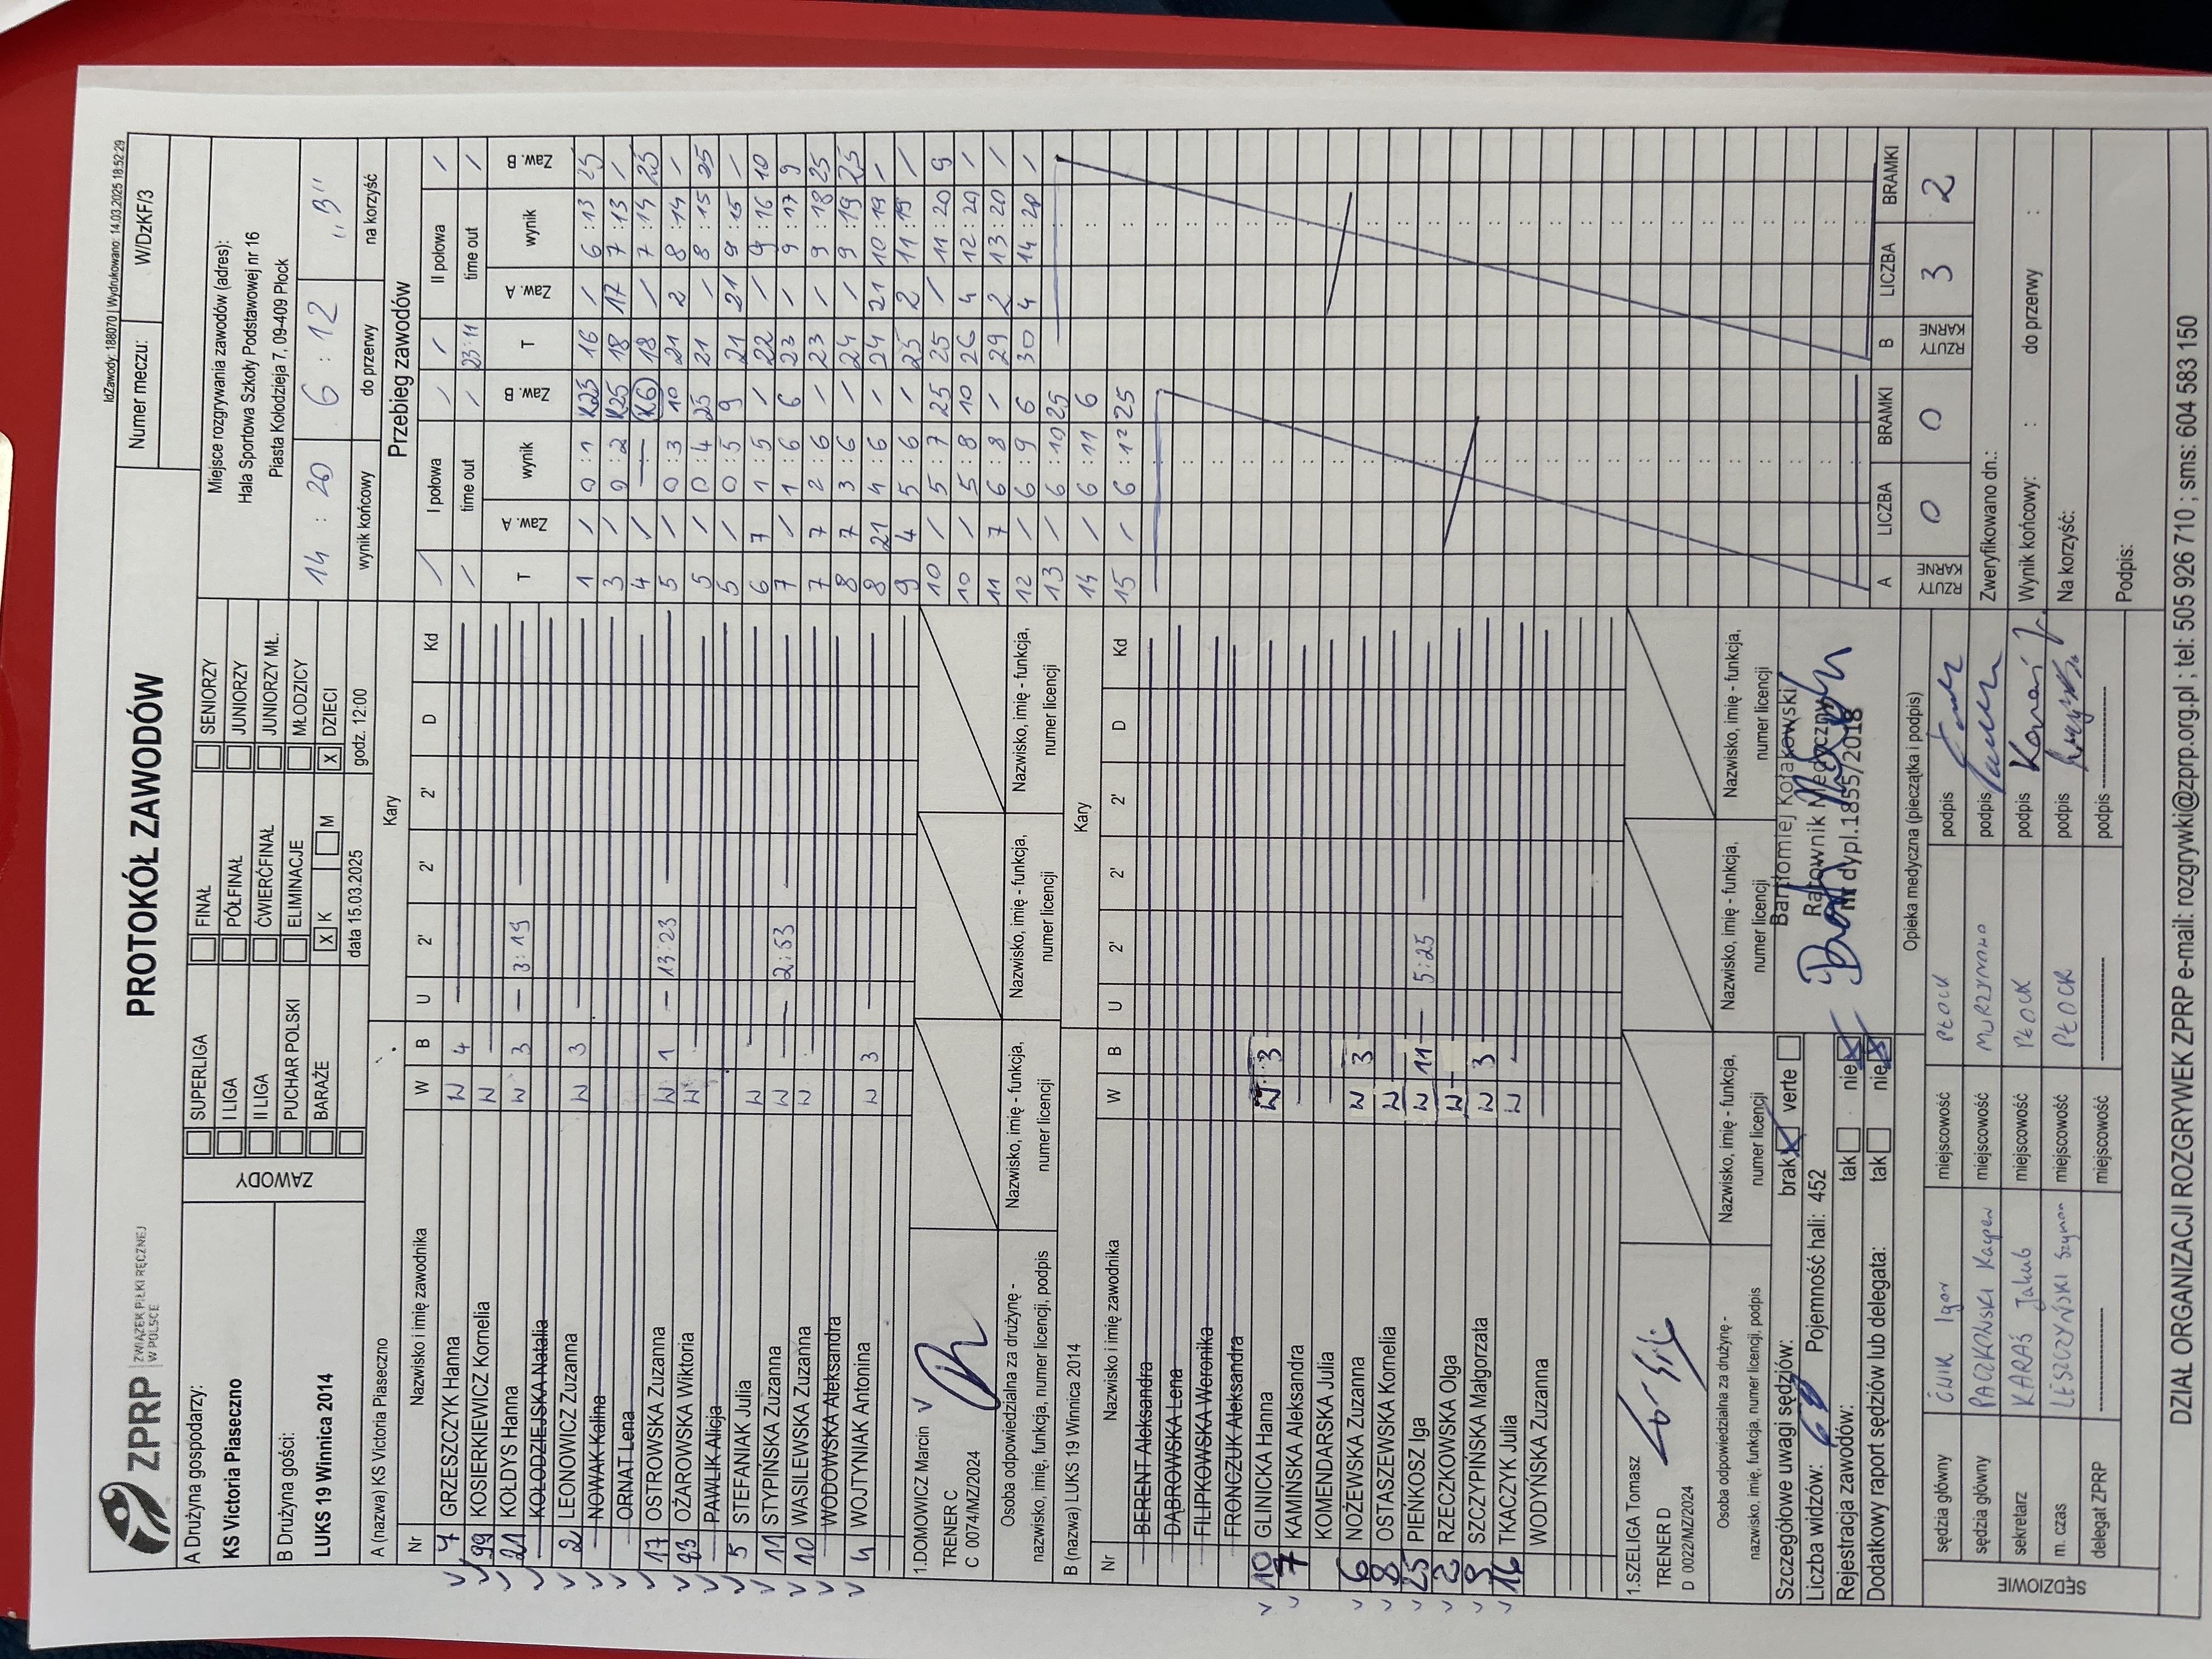 IdZawody: 188070 | Wydrukowano: 14.03.2025 18:52:29
ZPRP ZWIĄZEK PIŁKI RĘCZNEJ W POLSCE
PROTOKÓŁ ZAWODÓW
Numer meczu: W/DzKF/3
A Drużyna gospodarzy:
KS Victoria Piaseczno
B Drużyna gości:
LUKS 19 Winnica 2014
ZAWODY
SUPERLIGA FINAŁ SENIORZY
I LIGA PÓŁFINAŁ JUNIORZY
II LIGA ĆWIERĆFINAŁ JUNIORZY MŁ.
PUCHAR POLSKI ELIMINACJE MŁODZICY
BARAŻE X K M X DZIECI
data 15.03.2025 godz. 12:00
Miejsce rozgrywania zawodów (adres):
Hala Sportowa Szkoły Podstawowej nr 16
Piasta Kołodzieja 7, 09-409 Płock
14 : 20 6 : 12 „B”
wynik końcowy do przerwy na korzyść
A (nazwa) KS Victoria Piaseczno Kary
Nr Nazwisko i imię zawodnika W B U 2' 2' 2' D Kd
7 GRZESZCZYK Hanna W 4
99 KOSIERKIEWICZ Kornelia W
21 KOŁDYS Hanna W 3 3:19
KOŁODZIEJSKA Natalia
2 LEONOWICZ Zuzanna W 3
NOWAK Kalina
ORNAT Lena
17 OSTROWSKA Zuzanna W 1 13:23
OŻAROWSKA Wiktoria W
PAWLIK Alicja
5 STEFANIAK Julia W
11 STYPIŃSKA Zuzanna W 2:53
10 WASILEWSKA Zuzanna W
WODOWSKA Aleksandra
4 WOJTYNIAK Antonina W 3
1.DOMOWICZ Marcin
TRENER C
C 0074/MZ/2024
Osoba odpowiedzialna za drużynę -
nazwisko, imię, funkcja, numer licencji, podpis
Nazwisko, imię - funkcja, numer licencji
Nazwisko, imię - funkcja, numer licencji
Nazwisko, imię - funkcja, numer licencji
Nazwisko, imię - funkcja, numer licencji
B (nazwa) LUKS 19 Winnica 2014 Kary
Nr Nazwisko i imię zawodnika W B U 2' 2' 2' D Kd
BERENT Aleksandra
DĄBROWSKA Lena
FILIPKOWSKA Weronika
FRONCZUK Aleksandra
10 GLINICKA Hanna W 3
7 KAMIŃSKA Aleksandra
KOMENDARSKA Julia
6 NOŻEWSKA Zuzanna W 3
8 OSTASZEWSKA Kornelia W
25 PIEŃKOSZ Iga W 11 5:25
2 RZECZKOWSKA Olga W
9 SZCZYPIŃSKA Małgorzata W 3
16 TKACZYK Julia W
WODYŃSKA Zuzanna
1.SZELIGA Tomasz
TRENER D
D 0022/MZ/2024
Osoba odpowiedzialna za drużynę -
nazwisko, imię, funkcja, numer licencji, podpis
Nazwisko, imię - funkcja, numer licencji
Nazwisko, imię - funkcja, numer licencji
Nazwisko, imię - funkcja, numer licencji
Nazwisko, imię - funkcja, numer licencji
Szczegółowe uwagi sędziów: brak verte
Liczba widzów: Pojemność hali: 452
Rejestracja zawodów: tak nie
Dodatkowy raport sędziów lub delegata: tak nie
Bartłomiej Kołakowski
Ratownik Medyczny
nr dypl.1855/2018
Opieka medyczna (pieczątka i podpis)
SĘDZIOWIE
sędzia główny ĆWIK Igor miejscowość PŁOCK podpis
sędzia główny PACZKOWSKI Kacper miejscowość MURZYNOWO podpis
sekretarz KARAŚ Jakub miejscowość PŁOCK podpis
m. czas LESZCZYŃSKI Szymon miejscowość PŁOCK podpis
delegat ZPRP miejscowość podpis
Przebieg zawodów
I połowa / / II połowa / /
time out / / time out 23:11 /
T Zaw. A wynik Zaw. B T Zaw. A wynik Zaw. B
1 / 0 : 1 K25 16 / 6 : 13 25
3 / 0 : 2 K25 18 17 7 : 13 /
4 / — K6 18 / 7 : 14 25
5 / 0 : 3 10 21 2 8 : 14 /
5 / 0 : 4 25 21 / 8 : 15 25
5 / 0 : 5 9 21 21 9 : 15 /
6 7 1 : 5 / 22 / 9 : 16 10
7 / 1 : 6 6 23 / 9 : 17 9
7 7 2 : 6 / 23 / 9 : 18 25
8 7 3 : 6 / 24 / 9 : 19 25
8 21 4 : 6 / 24 21 10 : 19 /
9 4 5 : 6 / 25 2 11 : 19 /
10 / 5 : 7 25 25 / 11 : 20 9
10 / 5 : 8 10 26 4 12 : 20 /
11 7 6 : 8 / 29 2 13 : 20 /
12 / 6 : 9 6 30 4 14 : 20 /
13 / 6 : 10 25
14 / 6 : 11 6
15 / 6 : 12 25
A LICZBA BRAMKI B LICZBA BRAMKI
RZUTY KARNE 0 0 RZUTY KARNE 3 2
Zweryfikowano dn.:
Wynik końcowy: : do przerwy :
Na korzyść:
Podpis:
DZIAŁ ORGANIZACJI ROZGRYWEK ZPRP e-mail: rozgrywki@zprp.org.pl ; tel: 505 926 710 ; sms: 604 583 150